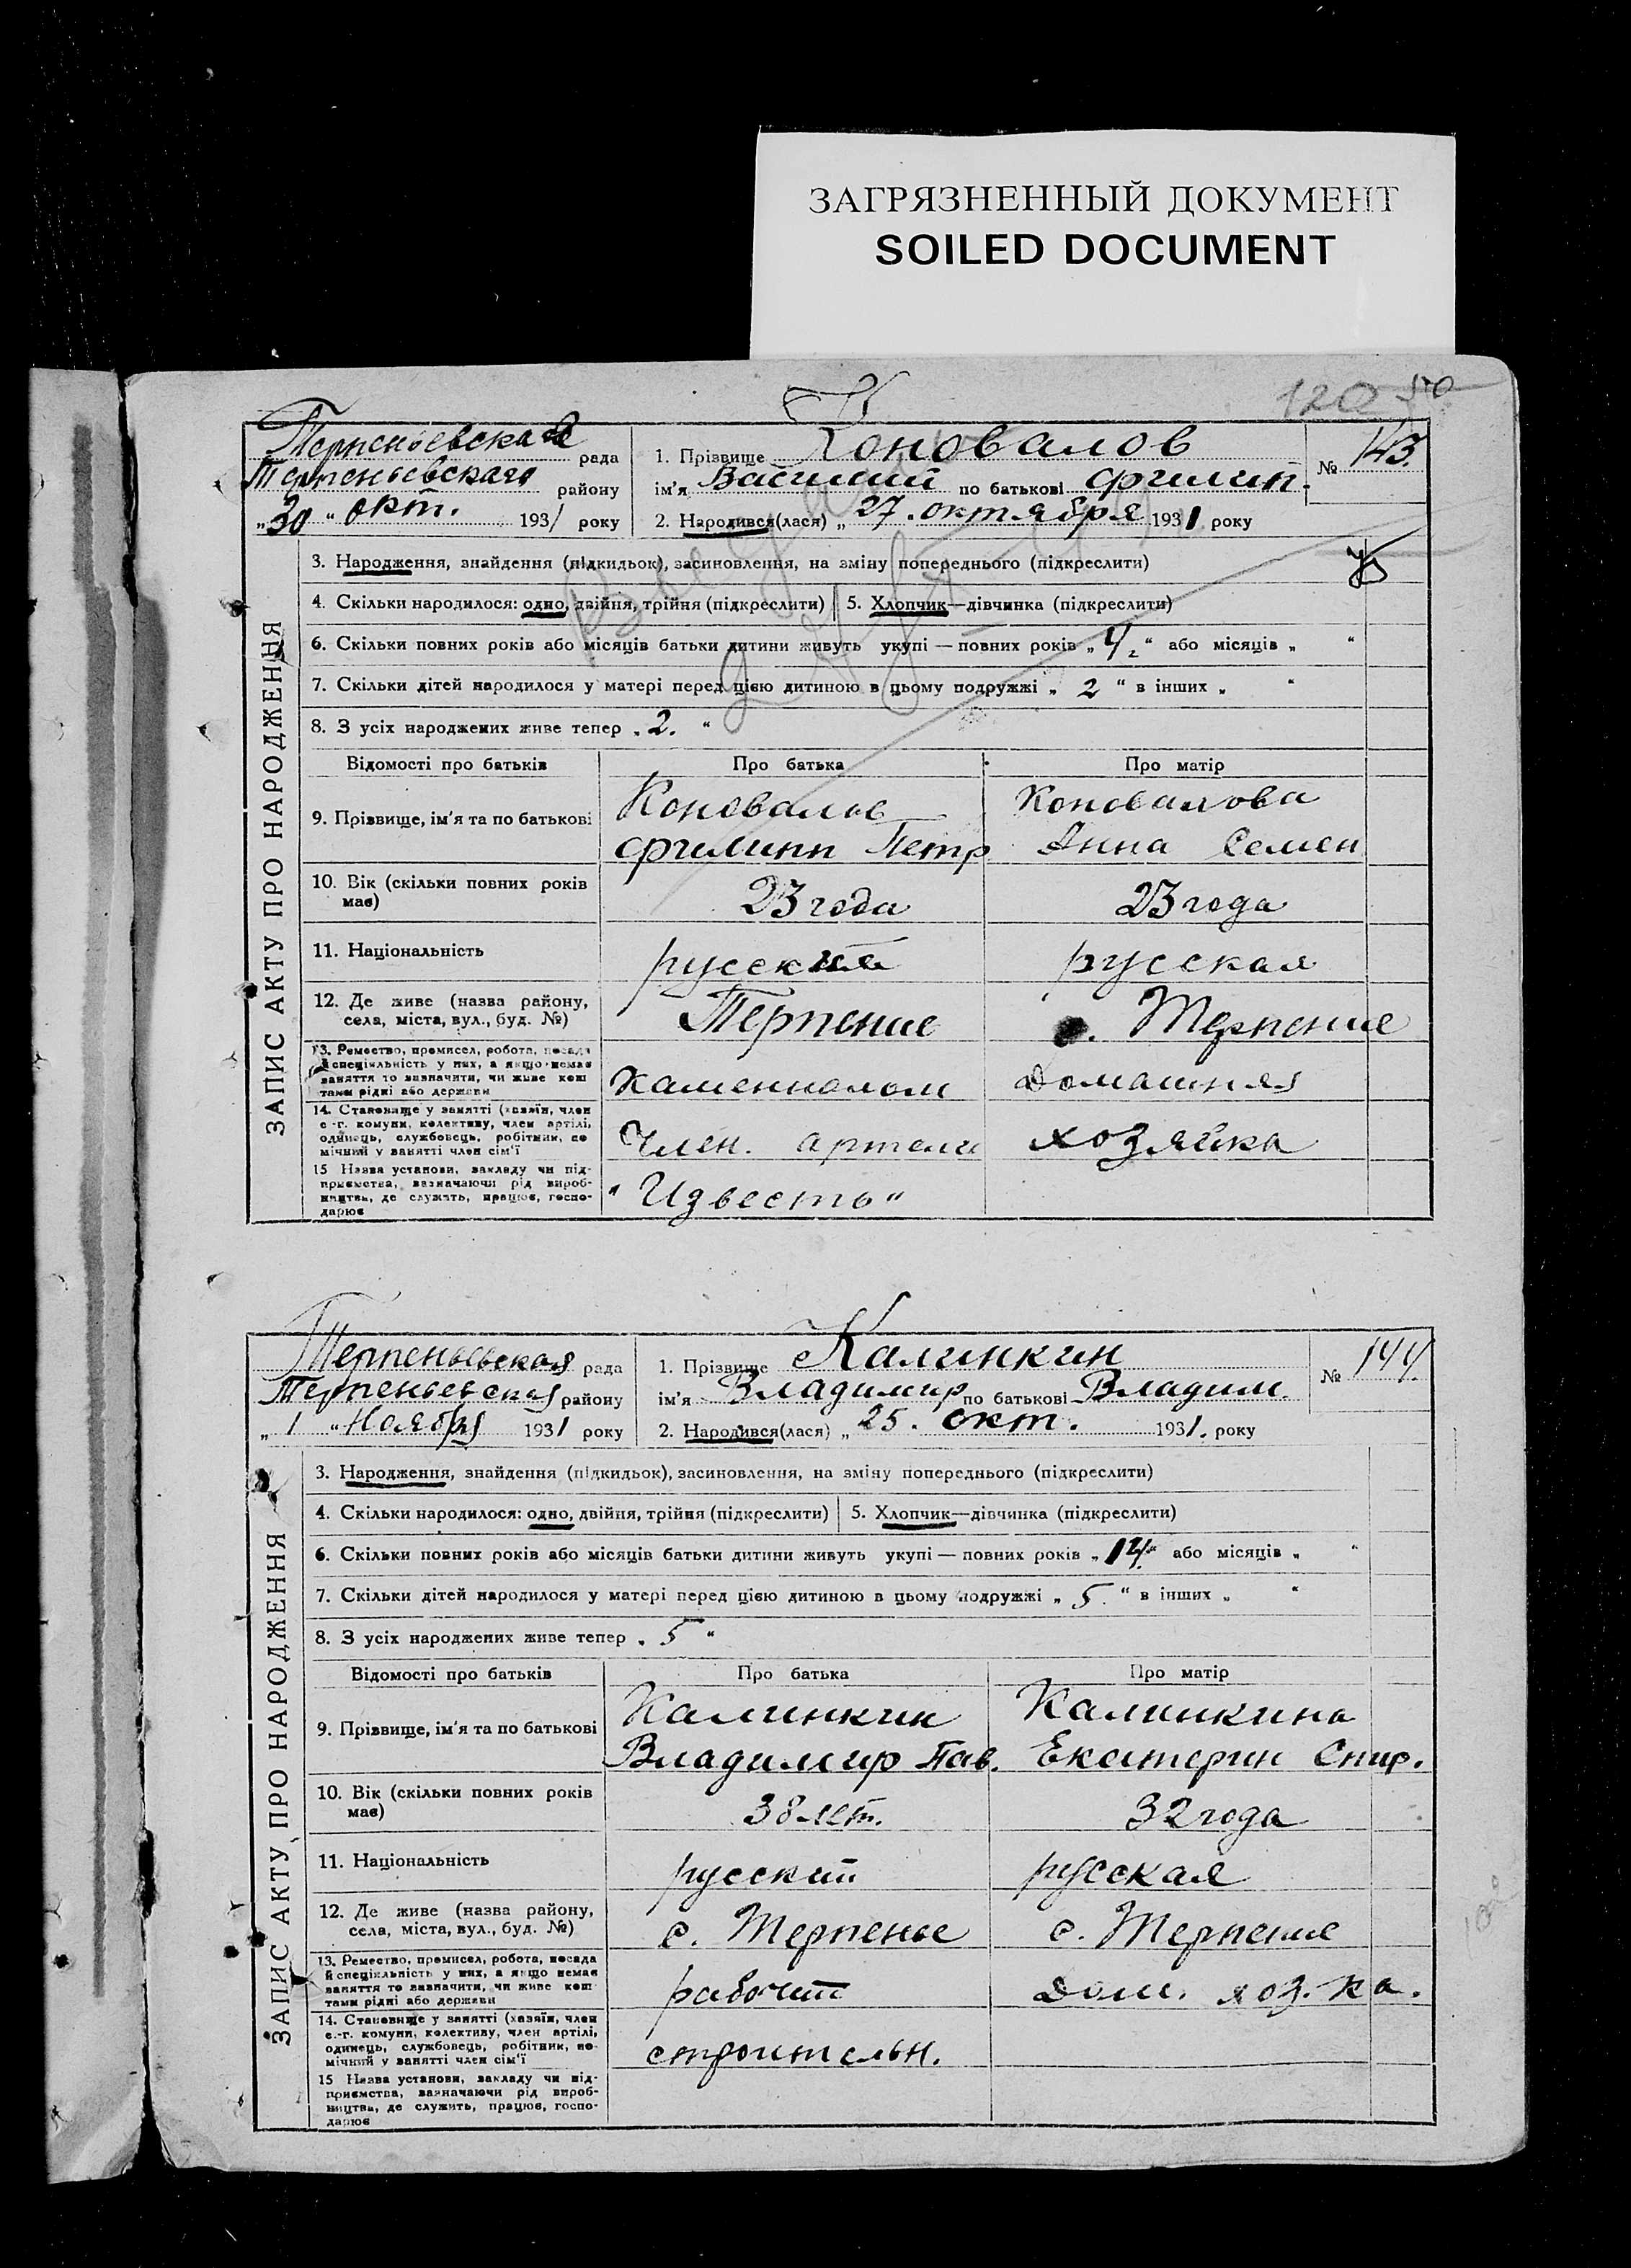 ЗАГРЯЗНЕННЫЙ ДОКУМЕНТ
SOILED DOCUMENT
К
120
Терпеньевская рада
Терпеньевского району
„30" окт. 1931 року
1. Прізвище Коновалов
ім'я Василий по батькові Филип.
2. Народився(лася) „27. октября 1931 року
№ 143.
ЗАПИС АКТУ ПРО НАРОДЖЕННЯ
3. Народження, знайдення (підкидьок), засиновлення, на зміну попереднього (підкреслити)
4. Скільки народилося: одно, двійня, трійня (підкреслити) 5. Хлопчик—дівчинка (підкреслити)
6. Скільки повних років або місяців батьки дитини живуть укупі — повних років „4." або місяців „ "
7. Скільки дітей народилося у матері перед цією дитиною в цьому подружжі „ 2 " в інших „ "
8. З усіх народжених живе тепер „2. "
Відомості про батьків Про батька Про матір
9. Прізвище, ім'я та по батькові Коновалов Коновалова
Филипп Петр Анна Семен
10. Вік (скільки повних років має) 23 года 23 года
11. Національність русский русская
12. Де живе (назва району, села, міста, вул., буд. №) Терпение с. Терпение
13. Ремество, промисел, робота, посада
й спеціяльність у них, а якщо немає
заняття то визначити, чи живе кош
тами рідні або держави Каменнолом Домашняя
14. Становище у занятті (хазяїн, член
с.-г. комуни, колективу, член артілі,
одинець, службовець, робітник, по
мічний у занятті член сім'ї Член. артели хозяйка
15 Назва установи, закладу чи під-
приємства, зазначаючи рід вироб-
ництва, де служить, працює, госпо-
дарює "Известь"
Терпеньевская рада
Терпеньевская району
„ 1 " Ноября 1931 року
1. Прізвище Калинкин
ім'я Владимир по батькові Владим.
2. Народився(лася) „ 25. окт. 1931. року
№ 144.
ЗАПИС АКТУ ПРО НАРОДЖЕННЯ
3. Народження, знайдення (підкидьок), засиновлення, на зміну попереднього (підкреслити)
4. Скільки народилося: одно, двійня, трійня (підкреслити) 5. Хлопчик—дівчинка (підкреслити)
6. Скільки повних років або місяців батьки дитини живуть укупі — повних років „14." або місяців „ "
7. Скільки дітей народилося у матері перед цією дитиною в цьому подружжі „ 5. " в інших „ "
8. З усіх народжених живе тепер „ 5 "
Відомості про батьків Про батька Про матір
9. Прізвище, ім'я та по батькові Калинкин Калинкина
Владимир Пав. Екатерин Спир.
10. Вік (скільки повних років має) 38 лет. 32 года
11. Національність русский русская
12. Де живе (назва району, села, міста, вул., буд. №) с. Терпенье с. Терпение
13. Ремество, промисел, робота, посада
й спеціяльність у них, а якщо немає
заняття то визначити, чи живе кош
тами рідні або держави рабочий Дом. хоз.-ка.
14. Становище у занятті (хазяїн, член
с.-г. комуни, колективу, член артілі,
одинець, службовець, робітник, по-
мічний у занятті член сім'ї строительн.
15 Назва установи, закладу чи під-
приємства, зазначаючи рід вироб-
ництва, де служить, працює, госпо-
дарює